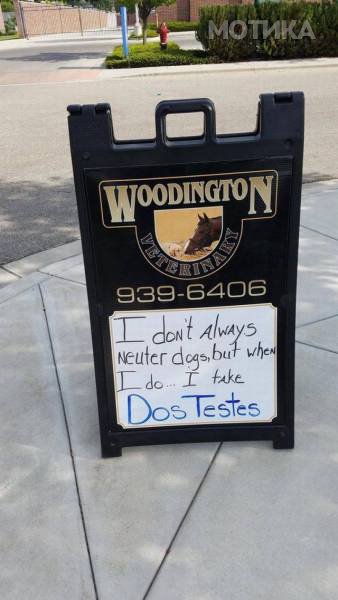 МОТИКА
WOODINGTON
VETERINARY
939-6406
I don't Always
Neuter dogs, but when
I do... I take
Dos Testes